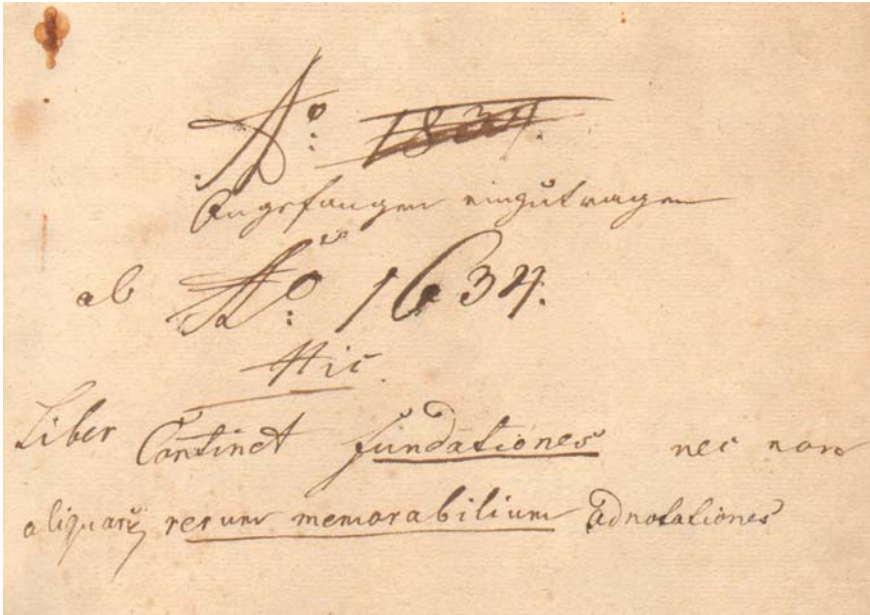 Aͦ: 1834.
Angefangen einzutragen
ab Aͦ: 1634.
Hic
Liber Continet fundationes nec non
aliquarū rerum memorabilium adnotationes